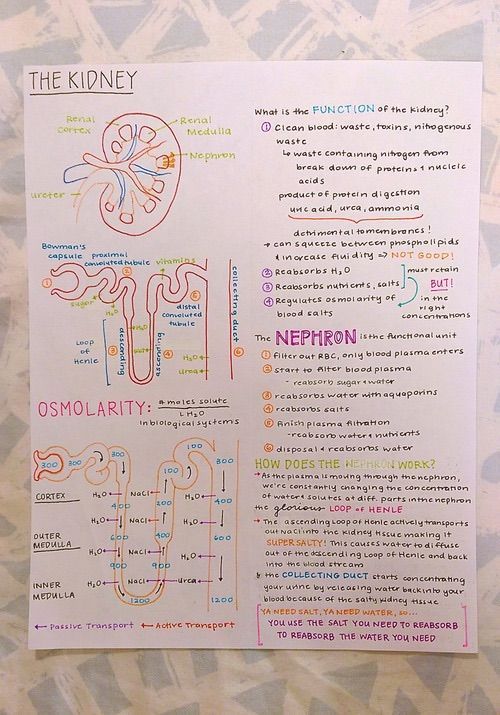 THE KIDNEY
Renal
Cortex
Renal
Medulla
Nephron
ureter
Bowman's
capsule
proximal
convoluted tubule
vitamins
①
②
sugar
H₂O
⑤
distal
convoluted
tubule
collecting duct
Loop
of
Henle
descending
③
H₂O
salt
ascending
④
H₂O
urea
⑥
OSMOLARITY: # moles solute
L H₂O
in biological systems
300
300
300
300
100
100
300
CORTEX
H₂O
NaCl
H₂O
400
200
400
OUTER
MEDULLA
H₂O
NaCl
H₂O
600
400
600
H₂O
NaCl
H₂O
900
900
INNER
MEDULLA
H₂O
NaCl
urea
1200
1200
← Passive Transport
← Active Transport
What is the FUNCTION of the kidney?
① Clean blood: waste, toxins, nitrogenous
waste
↳ waste containing nitrogen from
break down of proteins + nucleic
acids
product of protein digestion
uric acid, urea, ammonia
detrimental to membranes!
→ can squeeze between phospholipids
& increase fluidity => NOT GOOD!
② Reabsorbs H₂O
③ Reabsorbs nutrients, salts
④ Regulates osmolarity of
blood salts
must retain
BUT!
in the
right
concentrations
The NEPHRON is the functional unit
① filter out RBC, only blood plasma enters
② start to filter blood plasma
- reabsorb sugar & water
③ reabsorbs water with aquaporins
④ reabsorbs salts
⑤ finish plasma filtration
- reabsorb water & nutrients
⑥ disposal & reabsorbs water
HOW DOES THE NEPHRON WORK?
→ As the plasma is moving through the nephron,
we're constantly changing the concentration
of water & solutes at diff. parts in the nephron
the glorious LOOP OF HENLE
→ The ascending loop of Henle actively transports
out NaCl into the kidney tissue making it
SUPER SALTY! This causes water to diffuse
out of the descending loop of Henle and back
into the blood stream
& the COLLECTING DUCT starts concentrating
your urine by releasing water back into your
blood because of the salty kidney tissue
YA NEED SALT, YA NEED WATER, so...
YOU USE THE SALT YOU NEED TO REABSORB
TO REABSORB THE WATER YOU NEED